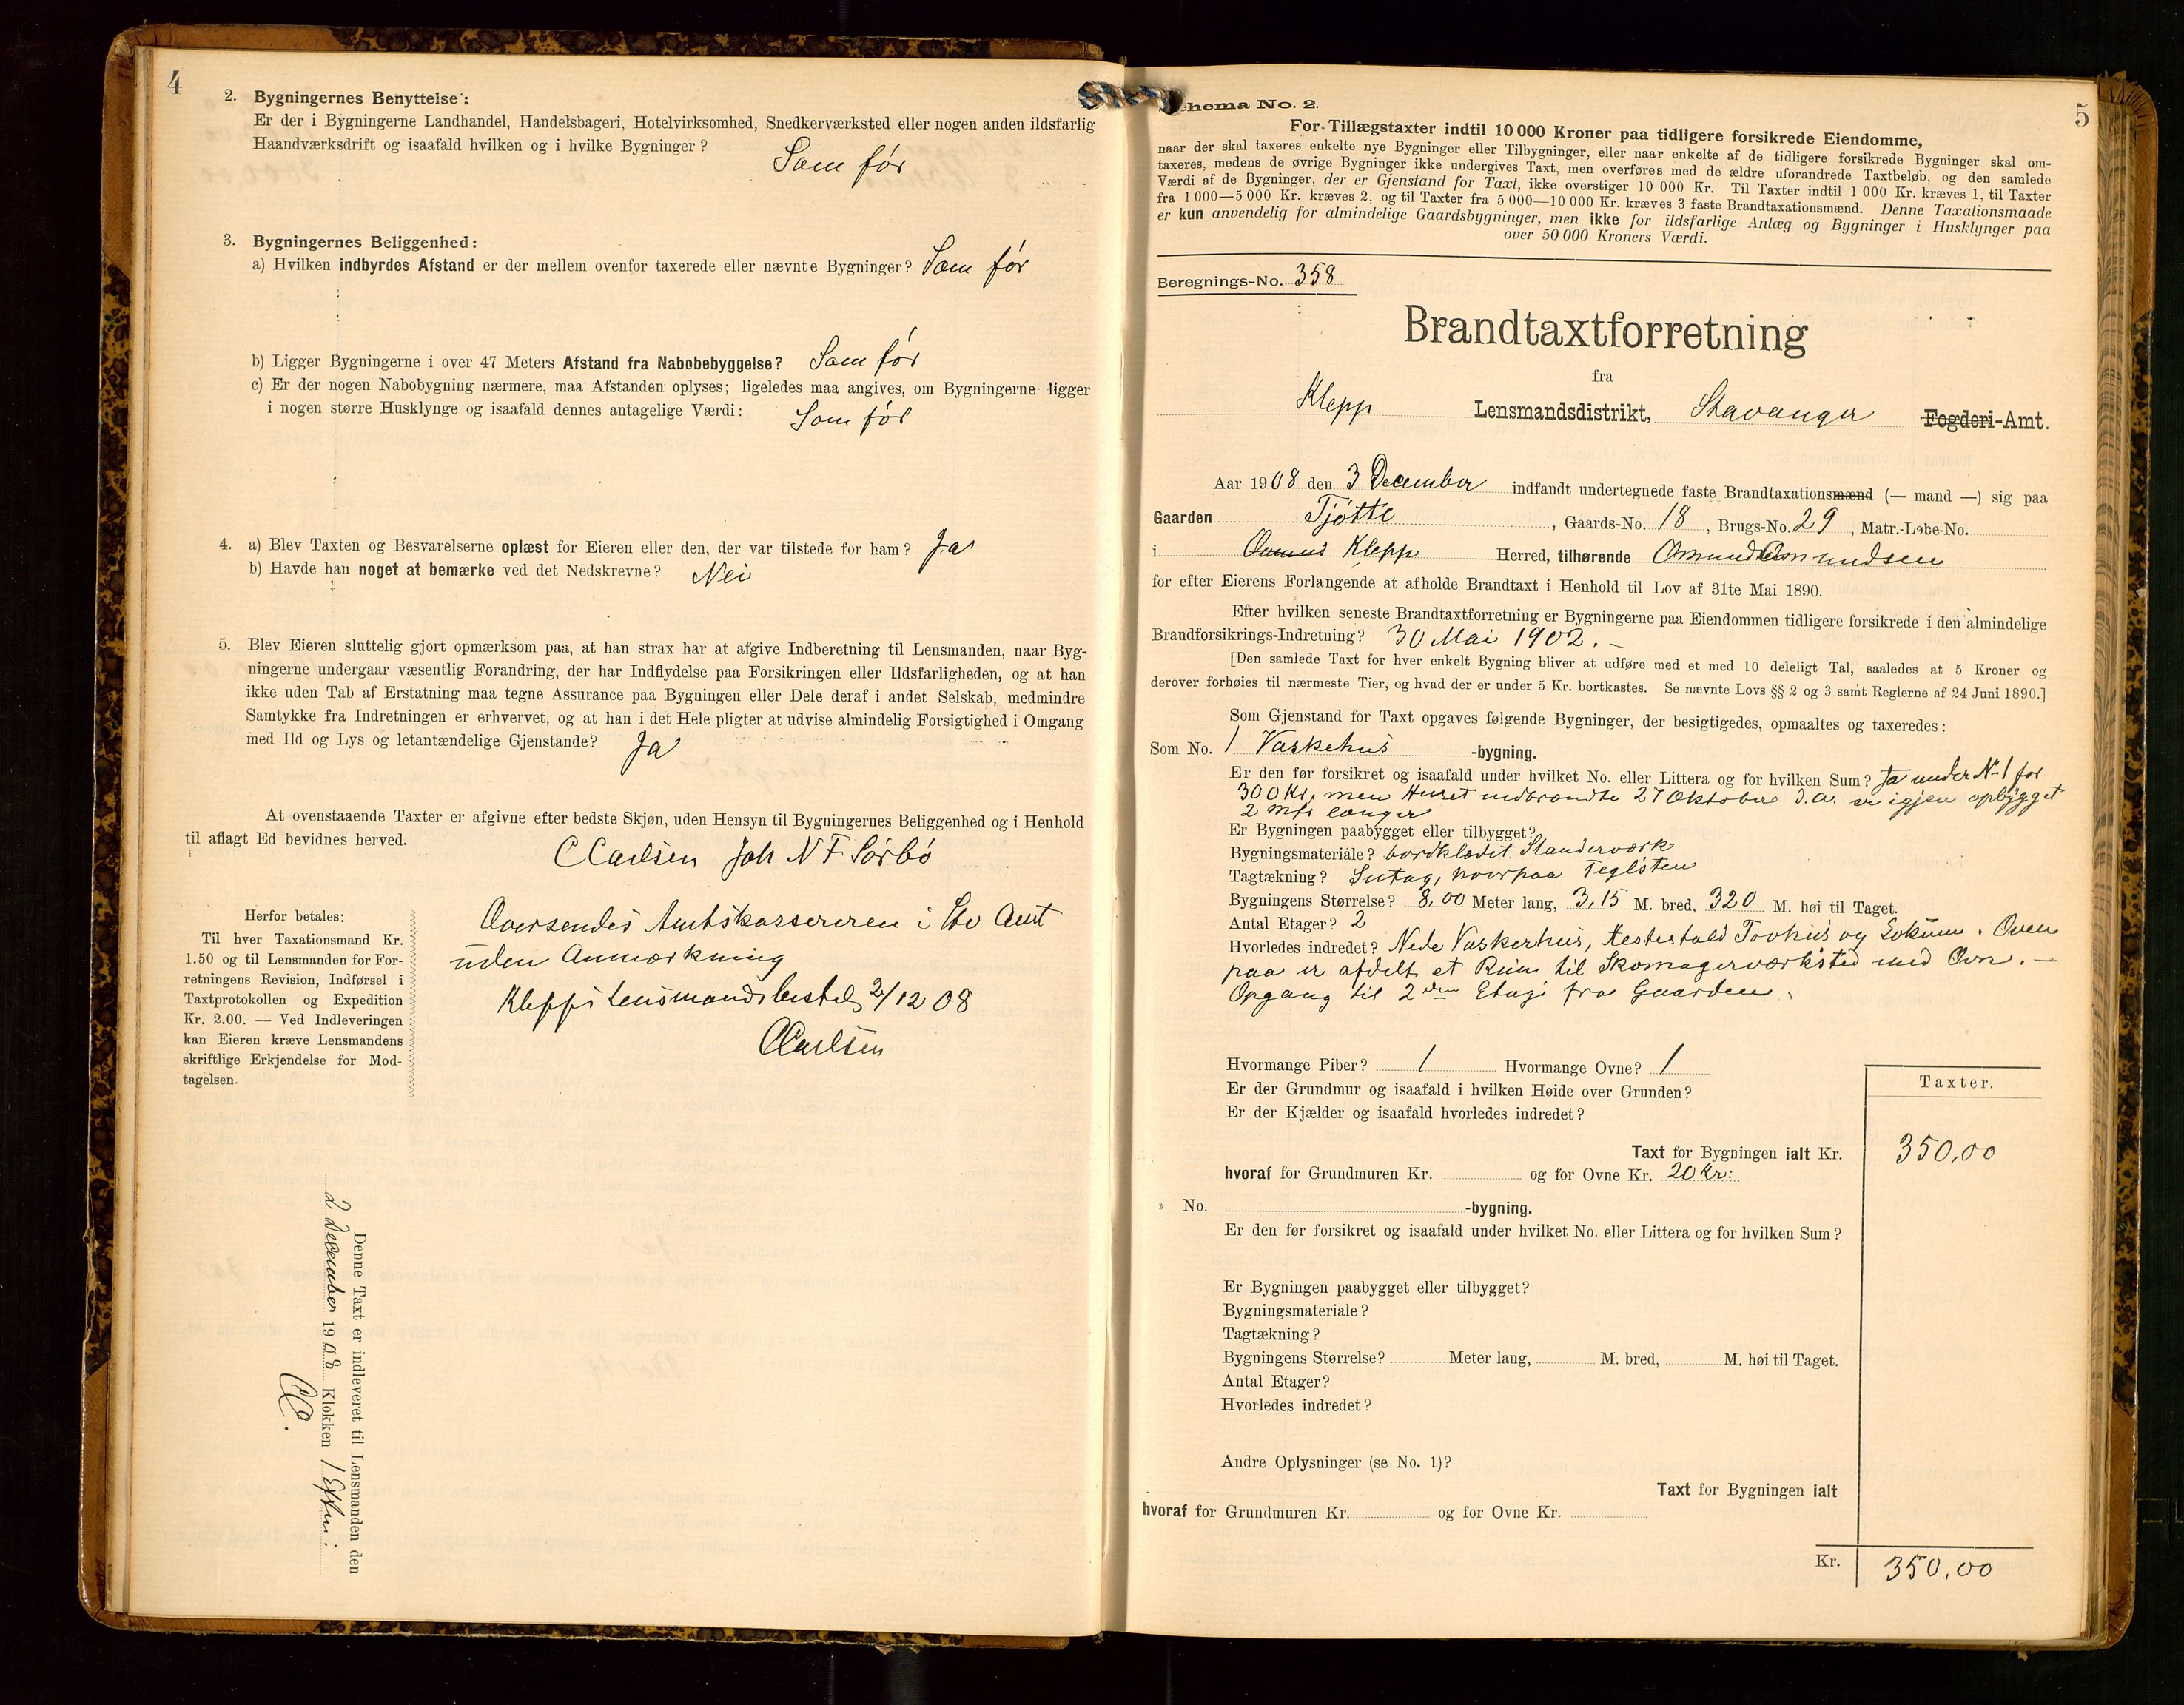 4
2. Bygningernes Benyttelse:
Er der i Bygningerne Landhandel, Handelsbageri, Hotelvirksomhed, Snedkerværksted eller nogen anden ildsfarlig
Haandværksdrift og isaafald hvilken og i hvilke Bygninger?
Som før
3. Bygningernes Beliggenhed:
a) Hvilken indbyrdes Afstand er der mellem ovenfor taxerede eller nævnte Bygninger? Som før
b) Ligger Bygningerne i over 47 Meters Afstand fra Nabobebyggelse? Som før
c) Er der nogen Nabobygning nærmere, maa Afstanden oplyses; ligeledes maa angives, om Bygningerne ligger
i nogen større Husklynge og isaafald dennes antagelige Værdi: Som før
4. a) Blev Taxten og Besvarelserne oplæst for Eieren eller den, der var tilstede for ham? Ja
b) Havde han noget at bemærke ved det Nedskrevne? Nei
5. Blev Eieren sluttelig gjort opmærksom paa, at han strax har at afgive Indberetning til Lensmanden, naar Byg-
ningerne undergaar væsentlig Forandring, der har Indflydelse paa Forsikringen eller Ildsfarligheden, og at han
ikke uden Tab af Erstatning maa tegne Assurance paa Bygningen eller Dele deraf i andet Selskab, medmindre
Samtykke fra Indretningen er erhvervet, og at han i det Hele pligter at udvise almindelig Forsigtighed i Omgang
med Ild og Lys og letantændelige Gjenstande? Ja
At ovenstaaende Taxter er afgivne efter bedste Skjøn, uden Hensyn til Bygningernes Beliggenhed og i Henhold
til aflagt Ed bevidnes herved.
C Carlsen Joh N F Sørbø
Herfor betales:
Til hver Taxationsmand Kr.
1.50 og til Lensmanden for For-
retningens Revision, Indførsel i
Taxtprotokollen og Expedition
Kr. 2.00. — Ved Indleveringen
kan Eieren kræve Lensmandens
skriftlige Erkjendelse for Mod-
tagelsen.
Oversendes Amtskassereren i Stv Amt
uden Anmærkning
Klepps Lensmandsbestil 2/12 08
CCarlsen
Denne Taxt er indleveret til Lensmanden den
2 December 1908 Klokken 1 Eftm:
CC.
5
Schema No. 2.
For Tillægstaxter indtil 10 000 Kroner paa tidligere forsikrede Eiendomme,
naar der skal taxeres enkelte nye Bygninger eller Tilbygninger, eller naar enkelte af de tidligere forsikrede Bygninger skal om-
taxeres, medens de øvrige Bygninger ikke undergives Taxt, men overføres med de ældre uforandrede Taxtbeløb, og den samlede
Værdi af de Bygninger, der er Gjenstand for Taxt, ikke overstiger 10 000 Kr. Til Taxter indtil 1 000 Kr. kræves 1, til Taxter
fra 1 000—5 000 Kr. kræves 2, og til Taxter fra 5 000—10 000 Kr. kræves 3 faste Brandtaxationsmænd. Denne Taxationsmaade
er kun anvendelig for almindelige Gaardsbygninger, men ikke for ildsfarlige Anlæg og Bygninger i Husklynger paa
over 50 000 Kroners Værdi.
Beregnings-No. 358
Brandtaxtforretning
fra
Klepp Lensmandsdistrikt, Stavanger Fogderi-Amt.
Aar 1908 den 3 December indfandt undertegnede faste Brandtaxationsmænd (— mand —) sig paa
Gaarden Tjøtte, Gaards-No. 18, Brugs-No. 29, Matr.-Løbe-No.
i Klepp Herred, tilhørende Omund Omundsen
for efter Eierens Forlangende at afholde Brandtaxt i Henhold til Lov af 31te Mai 1890.
Efter hvilken seneste Brandtaxtforretning er Bygningerne paa Eiendommen tidligere forsikrede i den almindelige
Brandforsikrings-Indretning? 30 Mai 1902. —
[Den samlede Taxt for hver enkelt Bygning bliver at udføre med et med 10 deleligt Tal, saaledes at 5 Kroner og
derover forhøies til nærmeste Tier, og hvad der er under 5 Kr. bortkastes. Se nævnte Lovs §§ 2 og 3 samt Reglerne af 24 Juni 1890.]
Som Gjenstand for Taxt opgaves følgende Bygninger, der besigtigedes, opmaaltes og taxeredes:
Som No. 1 Vaskehus -bygning.
Er den før forsikret og isaafald under hvilket No. eller Littera og for hvilken Sum? Ja under No 1 for
300 Kr, men Huset nedbrændte 27 Oktober d.a. er igjen opbygget
2 mtr længer
Er Bygningen paabygget eller tilbygget?
Bygningsmateriale? bordklædet Standerværk
Tagtækning? Sutag, hvorpaa Teglsten
Bygningens Størrelse? 8,00 Meter lang, 3,15 M. bred, 320 M. høi til Taget.
Antal Etager? 2
Hvorledes indredet? Nede Vaskerhus, Hestestald Torvhus og Lokum. Oven
paa er afdelt et Rum til Skomagerværksted med Ovn. —
Opgang til 2den Etage fra Gaarden.
Hvormange Piber? 1 Hvormange Ovne? 1
Er der Grundmur og isaafald i hvilken Høide over Grunden?
Er der Kjælder og isaafald hvorledes indredet?
Taxter.
Taxt for Bygningen ialt Kr. 350,00
hvoraf for Grundmuren Kr. og for Ovne Kr. 20 Kr:
» No. -bygning.
Er den før forsikret og isaafald under hvilket No. eller Littera og for hvilken Sum?
Er Bygningen paabygget eller tilbygget?
Bygningsmateriale?
Tagtækning?
Bygningens Størrelse? Meter lang, M. bred, M. høi til Taget.
Antal Etager?
Hvorledes indredet?
Andre Oplysninger (se No. 1)?
Taxt for Bygningen ialt
hvoraf for Grundmuren Kr. og for Ovne Kr.
Kr. 350,00